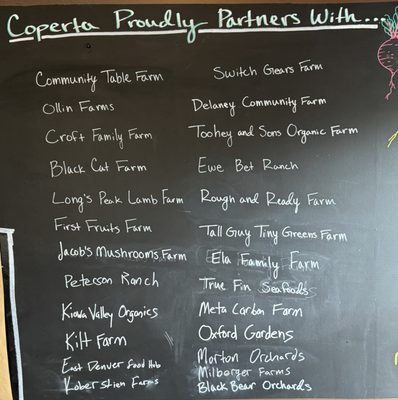 Coperta Proudly Partners With...
Community Table Farm
Ollin Farms
Croft Family Farm
Black Cat Farm
Long's Peak Lamb Farm
First Fruits Farm
Jacob's Mushrooms Farm
Peterson Ranch
Kiowa Valley Organics
Kilt Farm
East Denver Food Hub
Koberstien Farms
Switch Gears Farm
Delaney Community Farm
Toohey and Sons Organic Farm
Ewe Bet Ranch
Rough and Ready Farm
Tall Guy Tiny Greens Farm
Ela Family Farm
True Fin Seafoods
Meta Carbon Farm
Oxford Gardens
Morton Orchards
Milberger Farms
Black Bear Orchards